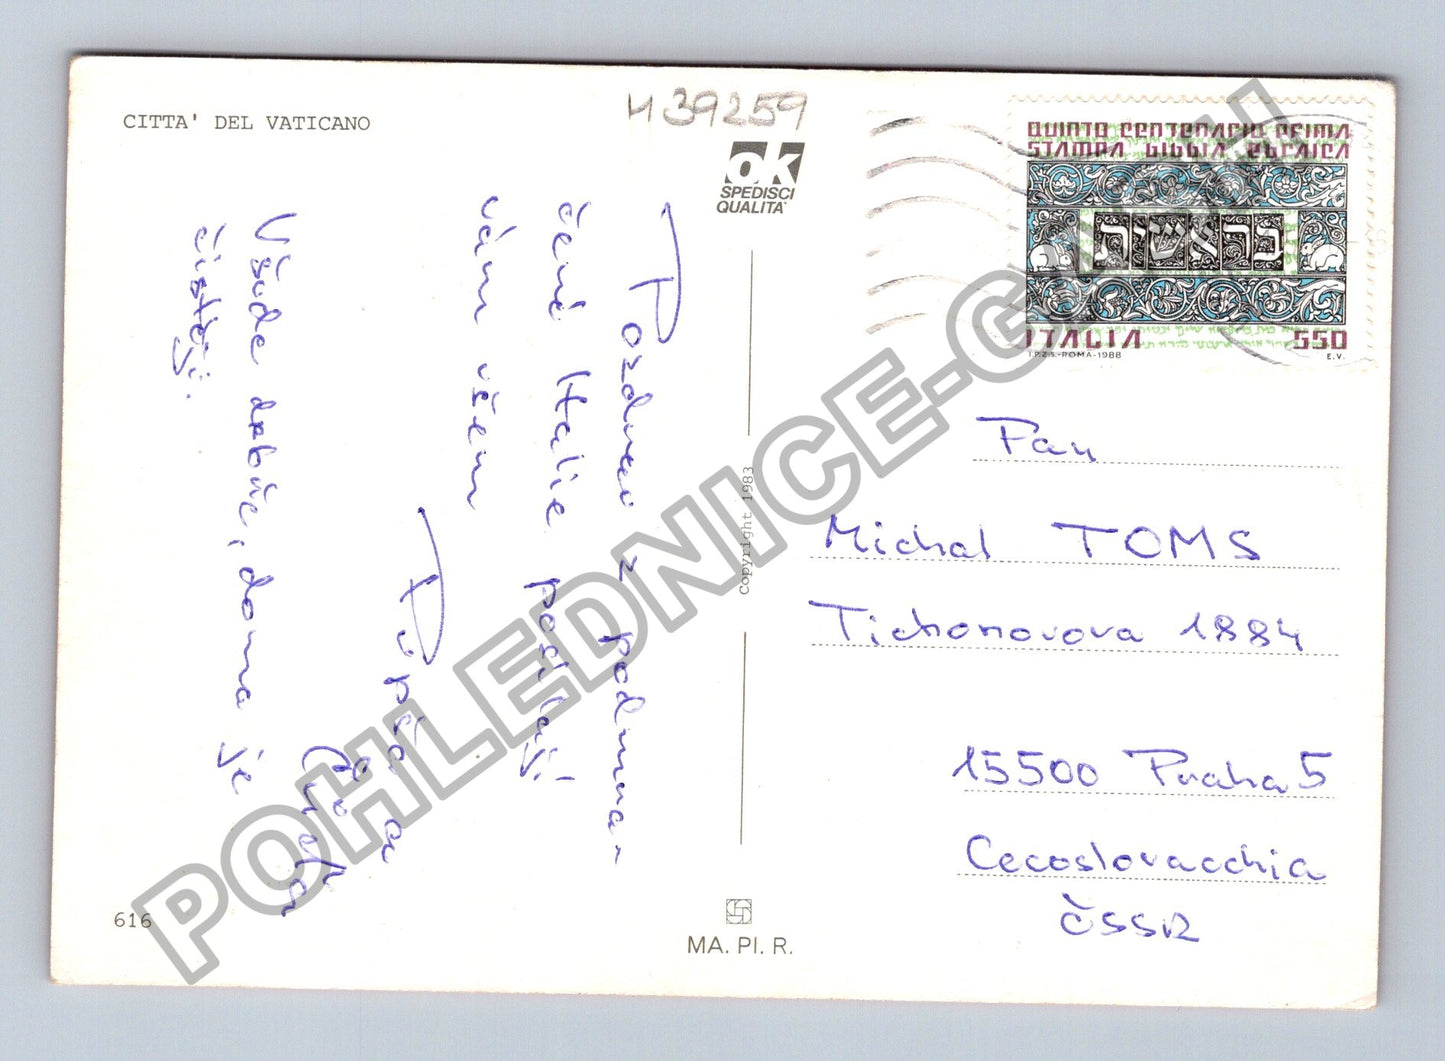 CITTA' DEL VATICANO
H39259
ok
SPEDISCI
QUALITA'
QUINTO CENTENARIO PRIMA
STAMPA BIBBIA EBRAICA
בראשית
ITALIA 550
I.P.Z.S.-ROMA-1988 E.V.
Pozdrav z podzima-
čené Italie posílají
vám všem
Pepča a
Květa
Všude dobře, doma je
čistěji.
Copyright 1983
Pan
Michal TOMS
Tichonovova 1884
15500 Praha 5
Cecoslovacchia
ČSSR
616
MA. PI. R.
POHLEDNICE-G